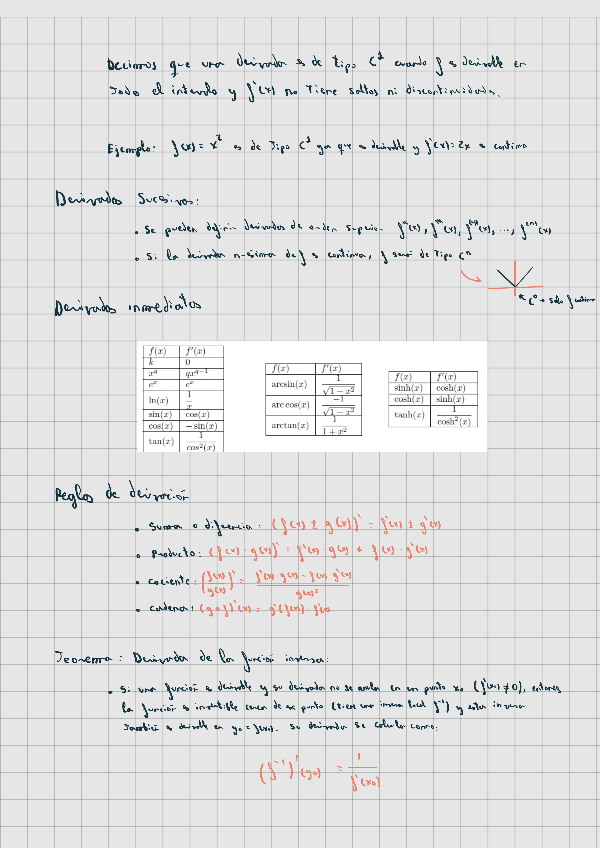 Decimos que una derivada es de tipo C¹ cuando f es derivable en
todo el intervalo y f'(x) no tiene saltos ni discontinuidades.
Ejemplo: f(x) = x² es de tipo C¹ ya que es derivable y f'(x) = 2x es continua
Derivadas Sucesivas:
• Se pueden definir derivadas de orden superior f''(x), f'''(x), f⁽⁴⁾(x), ..., f⁽ⁿ⁾(x)
• Si la derivada n-ésima de f es continua, f será de tipo Cⁿ
C⁰ → solo f continua
Derivadas inmediatas
f(x) f'(x)
k 0
x^q qx^{q−1}
e^x e^x
ln(x) 1/x
sin(x) cos(x)
cos(x) −sin(x)
tan(x) 1/cos²(x)
f(x) f'(x)
arcsin(x) 1/√(1−x²)
arccos(x) −1/√(1−x²)
arctan(x) 1/(1+x²)
f(x) f'(x)
sinh(x) cosh(x)
cosh(x) sinh(x)
tanh(x) 1/cosh²(x)
Reglas de derivación
• Suma o diferencia: (f(x) ± g(x))' = f'(x) ± g'(x)
• Producto: (f(x) · g(x))' = f'(x) · g(x) + f(x) · g'(x)
• cociente: (f(x)/g(x))' = (f'(x) · g(x) - f(x) · g'(x))/g(x)²
• cadena: (g∘f)'(x) = g'(f(x)) · f'(x)
Teorema: Derivada de la función inversa:
• Si una función es derivable y su derivada no se anula en un punto x₀ (f'(x₀) ≠ 0), entonces
la función es invertible cerca de ese punto (tiene una inversa local f⁻¹) y esta inversa
también es derivable en y₀ = f(x₀). Su derivada se calcula como:
(f⁻¹)'(y₀) = 1/f'(x₀)